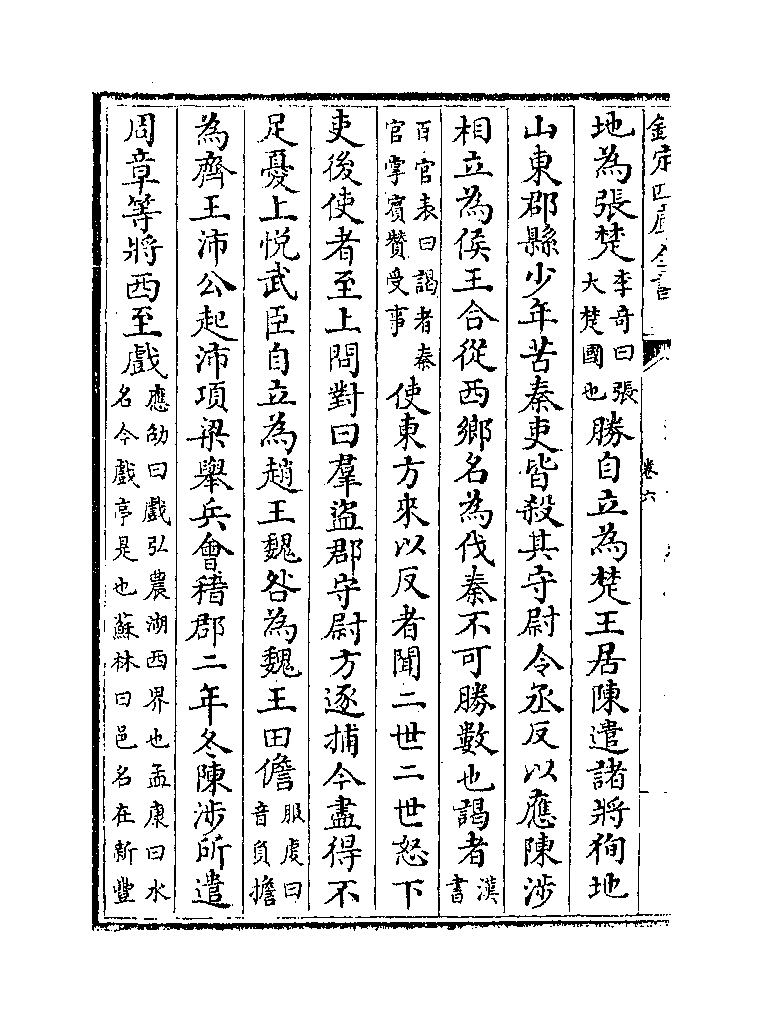 欽定四庫全書
卷六
地為張楚李奇曰張大楚國也勝自立為楚王居陳遣諸將狥地
山東郡縣少年苦秦吏皆殺其守尉令丞反以應陳涉
相立為侯王合從西鄉名為伐秦不可勝數也謁者漢書
百官表曰謁者秦官掌賓贊受事使東方來以反者聞二世二世怒下
吏後使者至上問對曰羣盗郡守尉方逐捕今盡得不
足憂上悦武臣自立為趙王魏咎為魏王田儋服虔曰音負擔
為齊王沛公起沛項梁舉兵會稽郡二年冬陳涉所遣
周章等將西至戲應劭曰戲弘農湖西界也孟康曰水名今戲亭是也蘇林曰邑名在新豐